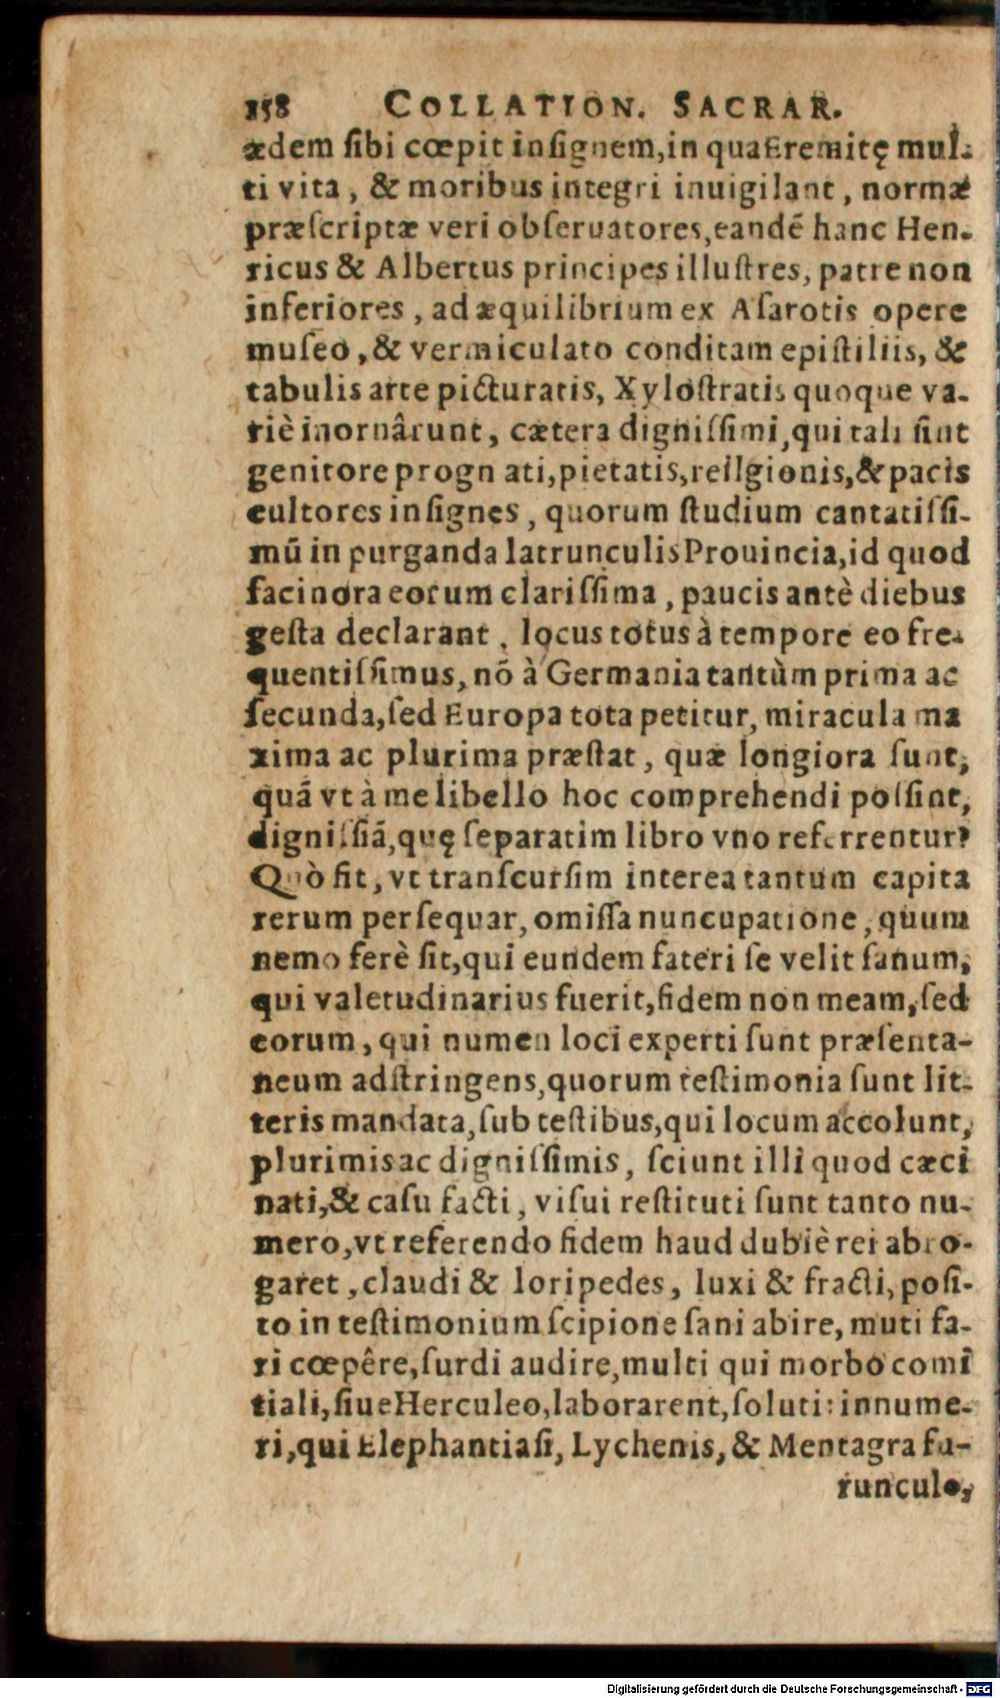 158 COLLATION. SACRAR.
ædem ſibi cœpit inſignem,in qua Eremitę mul-
ti vita, & moribus integri inuigilant, normæ
præſcriptæ veri obſeruatores,eandē hanc Hen-
ricus & Albertus principes illuſtres, patre non
inferiores, ad æquilibrium ex Aſarotis opere
muſeo,& vermiculato conditam epiſtiliis, &
tabulis arte picturatis, Xyloſtratis quoque va-
riè inornârunt, cætera digniſſimi,qui tali ſint
genitore progn ati,pietatis,reilgionis,& pacis
cultores inſignes, quorum ſtudium cantatiſſi-
mū in purganda latrunculis Prouincia,id quod
facinora eorum clariſſima, paucis antè diebus
geſta declarant, locus totus à tempore eo fre-
quentiſſimus, nō à Germania tantùm prima ac
ſecunda,ſed Europa tota petitur, miracula ma
xima ac plurima præſtat, quæ longiora ſunt,
quā vt à me libello hoc comprehendi poſſint,
digniſſiā,quę ſeparatim libro vno referrentur?
Quò fit, vt tranſcurſim interea tantum capita
rerum perſequar, omiſſa nuncupatione, quum
nemo ferè ſit,qui eundem fateri ſe velit ſanum,
qui valetudinarius fuerit,fidem non meam,ſed
eorum, qui numen loci experti ſunt præſenta-
neum adſtringens,quorum teſtimonia ſunt lit-
teris mandata,ſub teſtibus,qui locum accolunt,
plurimis ac digniſſimis, ſciunt illi quod cæci
nati,& caſu facti, viſui reſtituti ſunt tanto nu-
mero,vt referendo fidem haud dubiè rei abro-
garet, claudi & loripedes, luxi & fracti, poſi-
to in teſtimonium ſcipione ſani abire, muti fa-
ri cœpêre,ſurdi audire,multi qui morbo comi
tiali,ſiue Herculeo,laborarent,ſoluti: innume-
ri,qui Elephantiaſi, Lychenis, & Mentagra fu-
runculo,
Digitalisierung gefördert durch die Deutsche Forschungsgemeinschaft - DFG